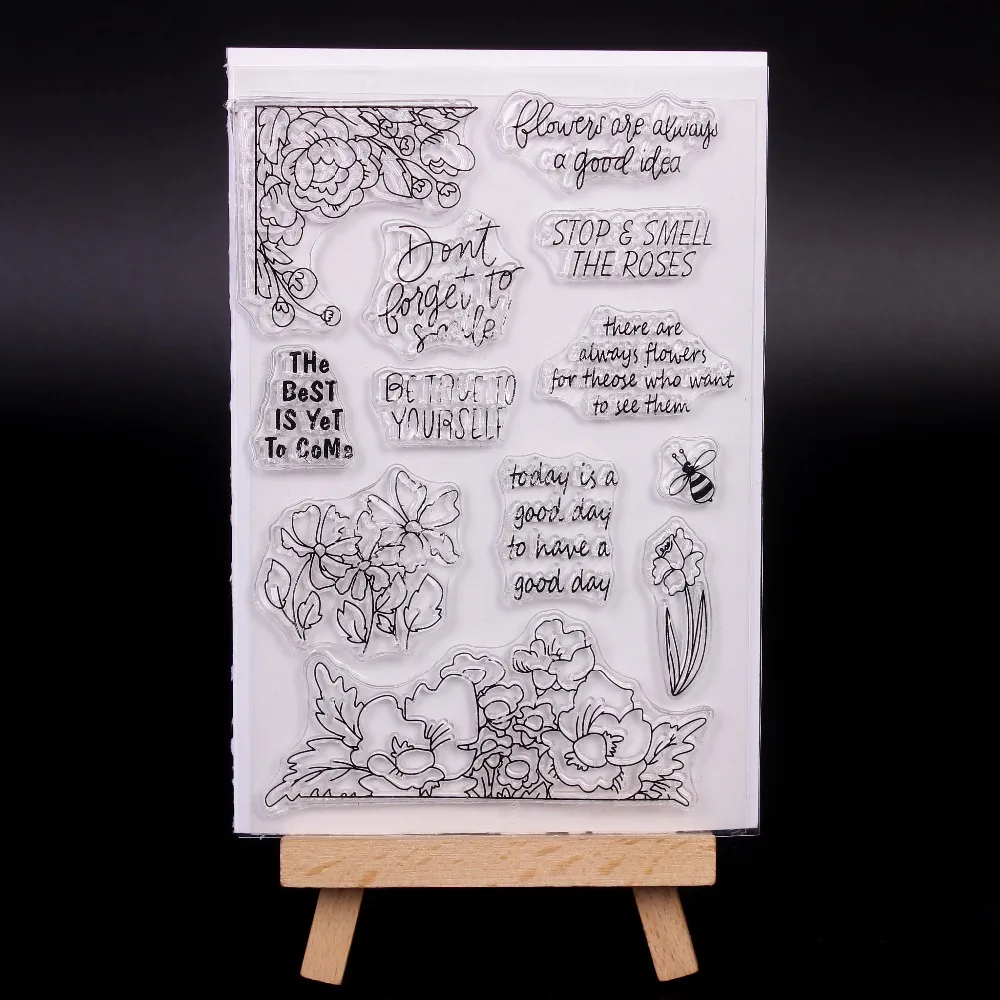 flowers are always
a good idea
Don't
forget to
smile!
STOP & SMELL
THE ROSES
there are
always flowers
for theose who want
to see them
THe
BeST
IS YeT
To CoMe
BE TRUE TO
YOURSELF
today is a
good day
to have a
good day